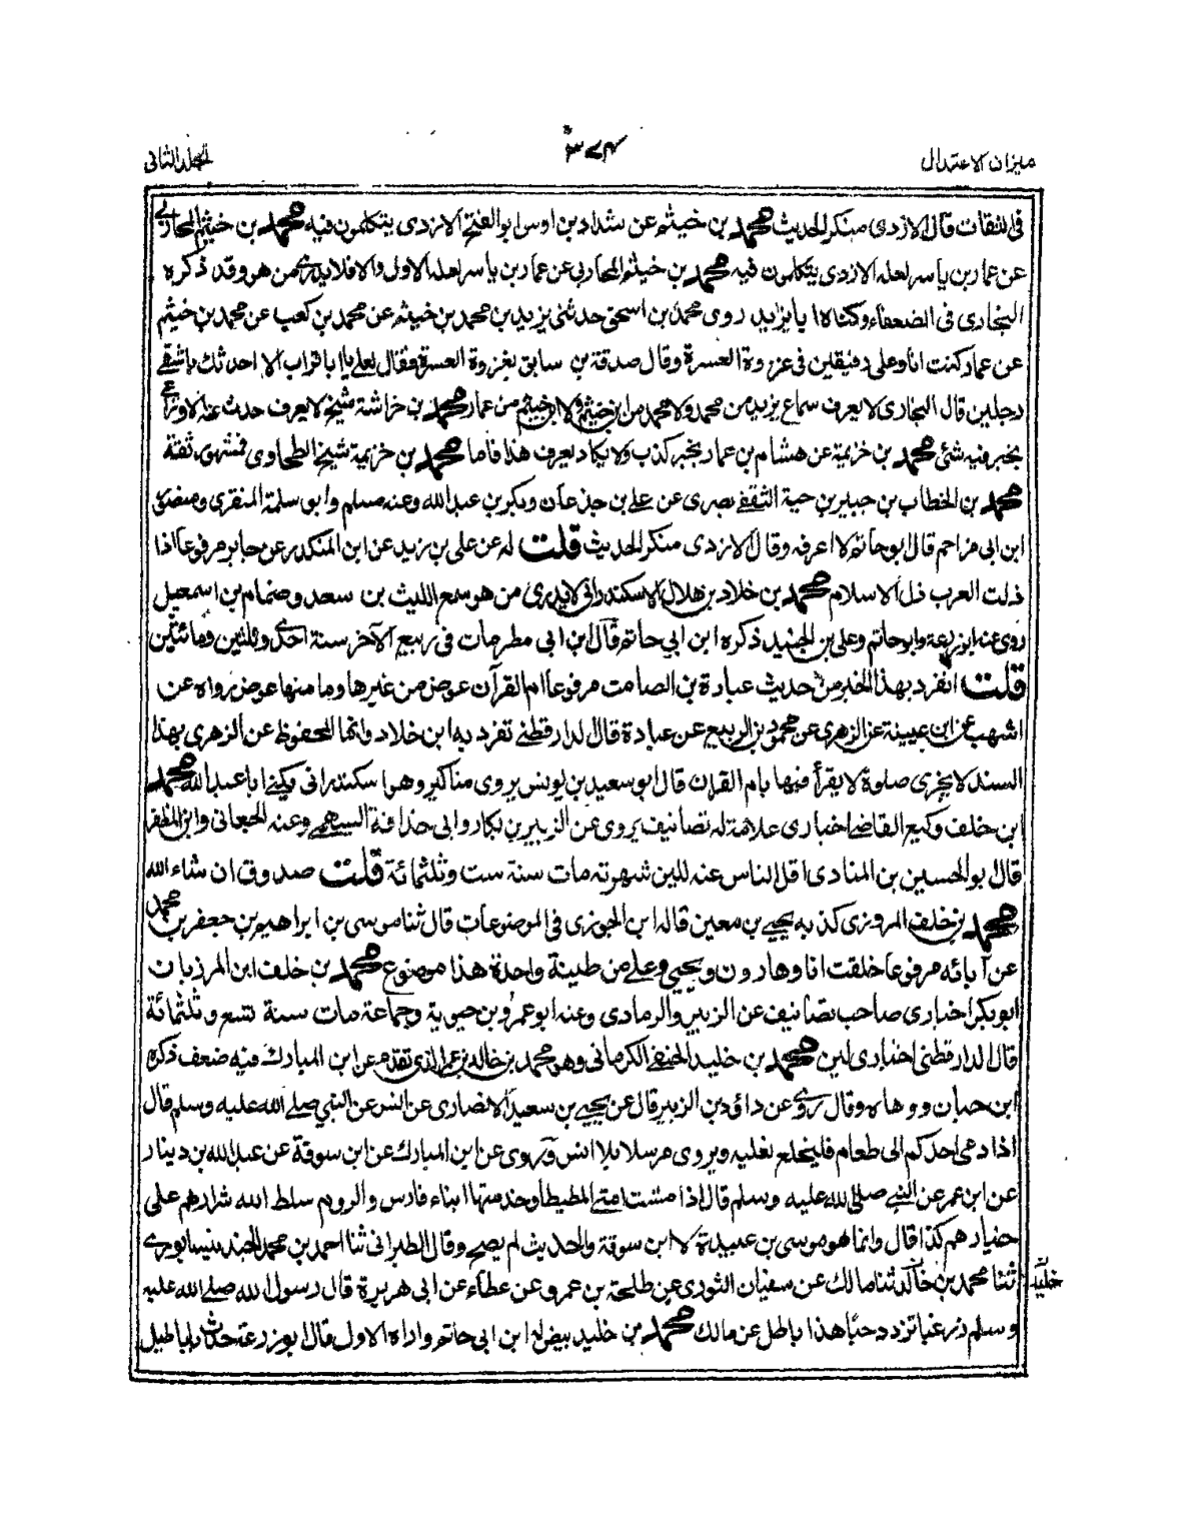 ميزان الاعتدال
٣٧٤
المجلد الثانى
فى الثقات قال الازدى منكر الحديث محمد بن خيثم عن شداد بن اوس ابو الفتح الازدى يتكلمون فيه محمد بن خيثم المحاربى
عن عمار بن ياسر لعله الازدى يتكلمون فيه محمد بن خيثم المحاربى عن عمار بن ياسر لعله الاول والا فلا يدرى من هو وقد ذكره
البخارى فى الضعفاء وكناه ابا يزيد روى محمد بن اسحق حدثنى يزيد بن محمد بن خيثم عن محمد بن كعب عن محمد بن خيثم
عن عمار كنت انا وعلى رفيقين فى غزوة العسرة وقال صدقة بن سابق بغزوة العسرة فقال لعلى يا ابا تراب الا احدثك باشقے
رجلين قال البخارى لا يعرف سماع يزيد من محمد ولا محمد من ابن خيثم ولا ابن خيثم من عمار محمد بن خراشة شيخ لا يعرف حدث عنه الاوزاعى
بخبر فيه شئ محمد بن خزيمة عن هشام بن عمار بخبر كذب ولا يكاد يعرف هذا فاما محمد بن خزيمة شيخ الطحاوى فمشهور ثقة
محمد بن الخطاب بن جبير بن حية الثقفے بصرى عن علے بن جذعان وبكر بن عبد الله وعنه مسلم وابو سلمة المنقرى ومنصور
ابن ابى مزاحم قال ابو حاتم لا اعرفه وقال الازدى منكر الحديث قلت له عن على بن زيد عن ابن المنكدر عن جابر مرفوعا اذا
ذلت العرب ذل الاسلام محمد بن خلاد بن هلال الاسكندرانى لا يدرى من هو سمع الليث بن سعد وضمام بن اسمعيل
روى عنه ابو زرعة وابو حاتم وعلى بن الجنيد ذكره ابن ابي حاتم قال ابن ابى مطر مات فى ربيع الآخر سنة احدى وثلثين ومائتين
قلت انفرد بهذا الخبر من حديث عبادة بن الصامت مرفوعا ام القرآن عوض من غيرها وما منها عوض رواه عن
اشهب عن ابن عيينة عن الزهرى عن محمود بن الربيع عن عبادة قال الدارقطنے تفرد به ابن خلاد وانما المحفوظ عن الزهرى بهذا
السند لا يجزى صلوة لا يقرأ فيها بام القران قال ابو سعيد بن يونس يروى مناكير وهو اسكندرانى يكنے ابا عبد الله محمد
ابن خلف وكيع القاضے اخبارى علامة له تصانيف يروى عن الزبير بن بكار وابى حذافة السهمے وعنه الجعابى وابن المظفر
قال ابو الحسين بن المنادى اقل الناس عنه للين شهرته مات سنة ست وثلثمائة قلت صدوق ان شاء الله
محمد بن خلف المروزى كذبه يحيے بن معين قاله ابن الجوزى فى الموضوعات قال ثنا موسى بن ابراهيم بن جعفر بن محمد
عن آبائه مرفوعا خلقت انا وهارون ويحيي وعلے من طينة واحدة هذا موضوع محمد بن خلف ابن المرزبان
ابو بكر اخبارى صاحب تصانيف عن الزبير والرمادى وعنه ابو عمرو بن حيوية وجماعة مات سنة تسع وثلثمائة
قال الدارقطنى اخبارى لين محمد بن خليد الحنفے الكرمانى وهو محمد بن خالد بن عمر الذى تقدم عن ابن المبارك فيه ضعف ذكره
ابن حبان ووهاه وقال روى عن داؤد بن الزبرقان عن يحيے بن سعيد الانصارى عن انس عن النبي صلے الله عليه وسلم قال
اذا دعى احدكم الى طعام فليخلع نعليه ويروى مرسلا بلا انس وروى عن ابن المبارك عن ابن سوقة عن عبد الله بن دينار
عن ابن عمر عن النبے صلى لله عليه وسلم قال اذا مشت امتے المطيطا وخدمتها ابناء فارس والروم سلط الله شرارهم على
خيارهم كذا قال وانما هو موسى بن عبيدة لا ابن سوقة والحديث لم يصح وقال الطبرانى ثنا احمد بن محمد الجنديسابورى
ثنا محمد بن خالد ثنا مالك عن سفيان الثورى عن طلحة بن عمرو عن عطاء عن ابى هريرة قال رسول الله صلے الله عليه
خليد
وسلم زر غبا تزدد حبا هذا باطل عن مالك محمد بن خليد بيض له ابن ابى حاتم واراه الاول قال ابو زرعة حدث اباطيل